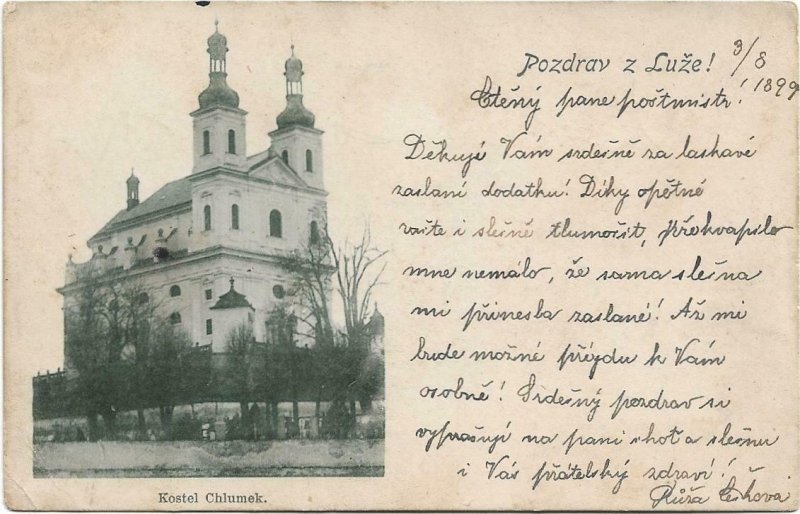 Pozdrav z Luže! 3/8 1899
Ctěný pane poštmistr!
Děkuji Vám srdešně za laskavé
zaslaní dodatku! Díky opětné
račte i slešně tlumošit, překvapilo
mne nemálo, že sama slešna
mi přinesla zaslané! Až mi
bude možné příjdu k Vám
osobně! Srdešný pozdrav si
vyprašuji na pani chot a slešnu
i Vás přátelský zdraví!
Růža
Kostel Chlumek.